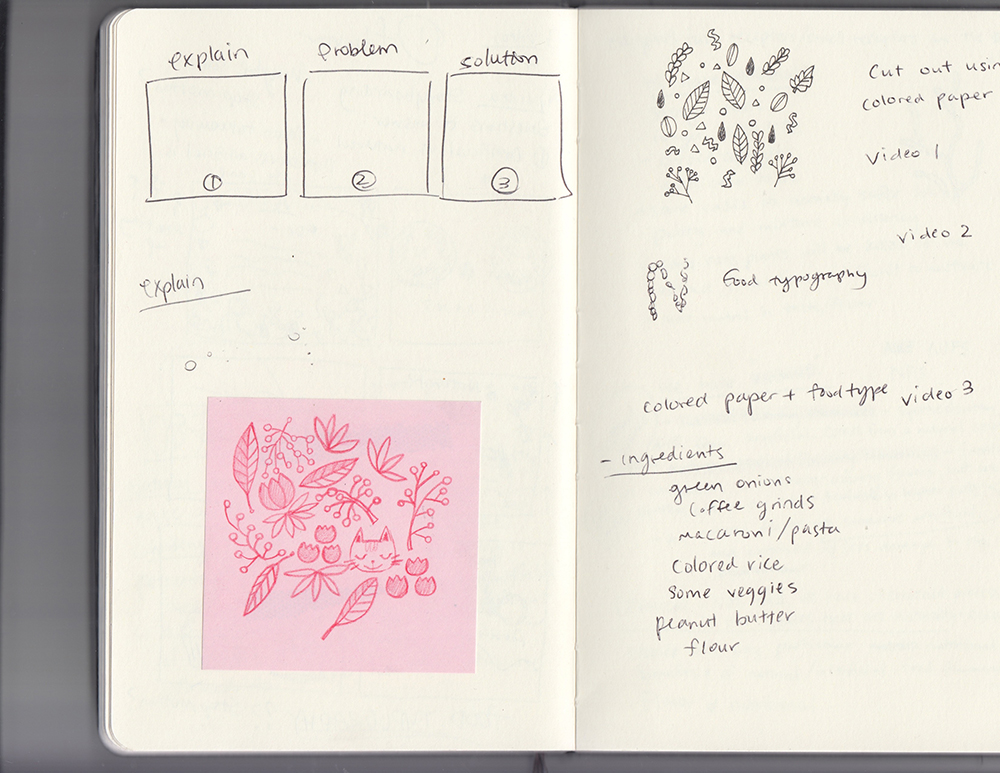 explain
problem
solution
1
2
3
explain
Cut out usin
colored paper
video 1
video 2
food typography
colored paper + food type video 3
- ingredients
green onions
coffee grinds
macaroni/pasta
colored rice
some veggies
peanut butter
flour